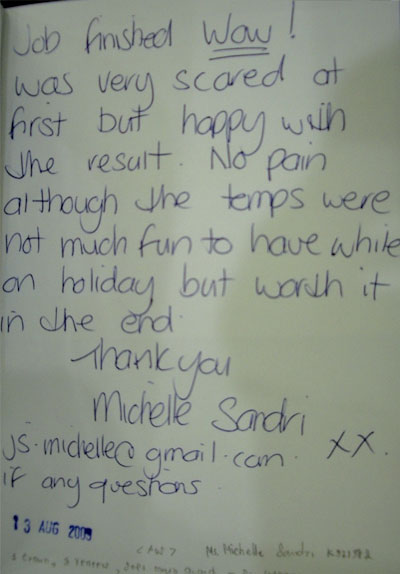 Job finished Wow!
was very scared at
first but happy with
the result. No pain
although the temps were
not much fun to have while
on holiday but worth it
in the end.
Thank you
Michelle Sandri
js.michelle@gmail.com. XX.
if any questions.
13 AUG 2009
Ms Michelle Sandri